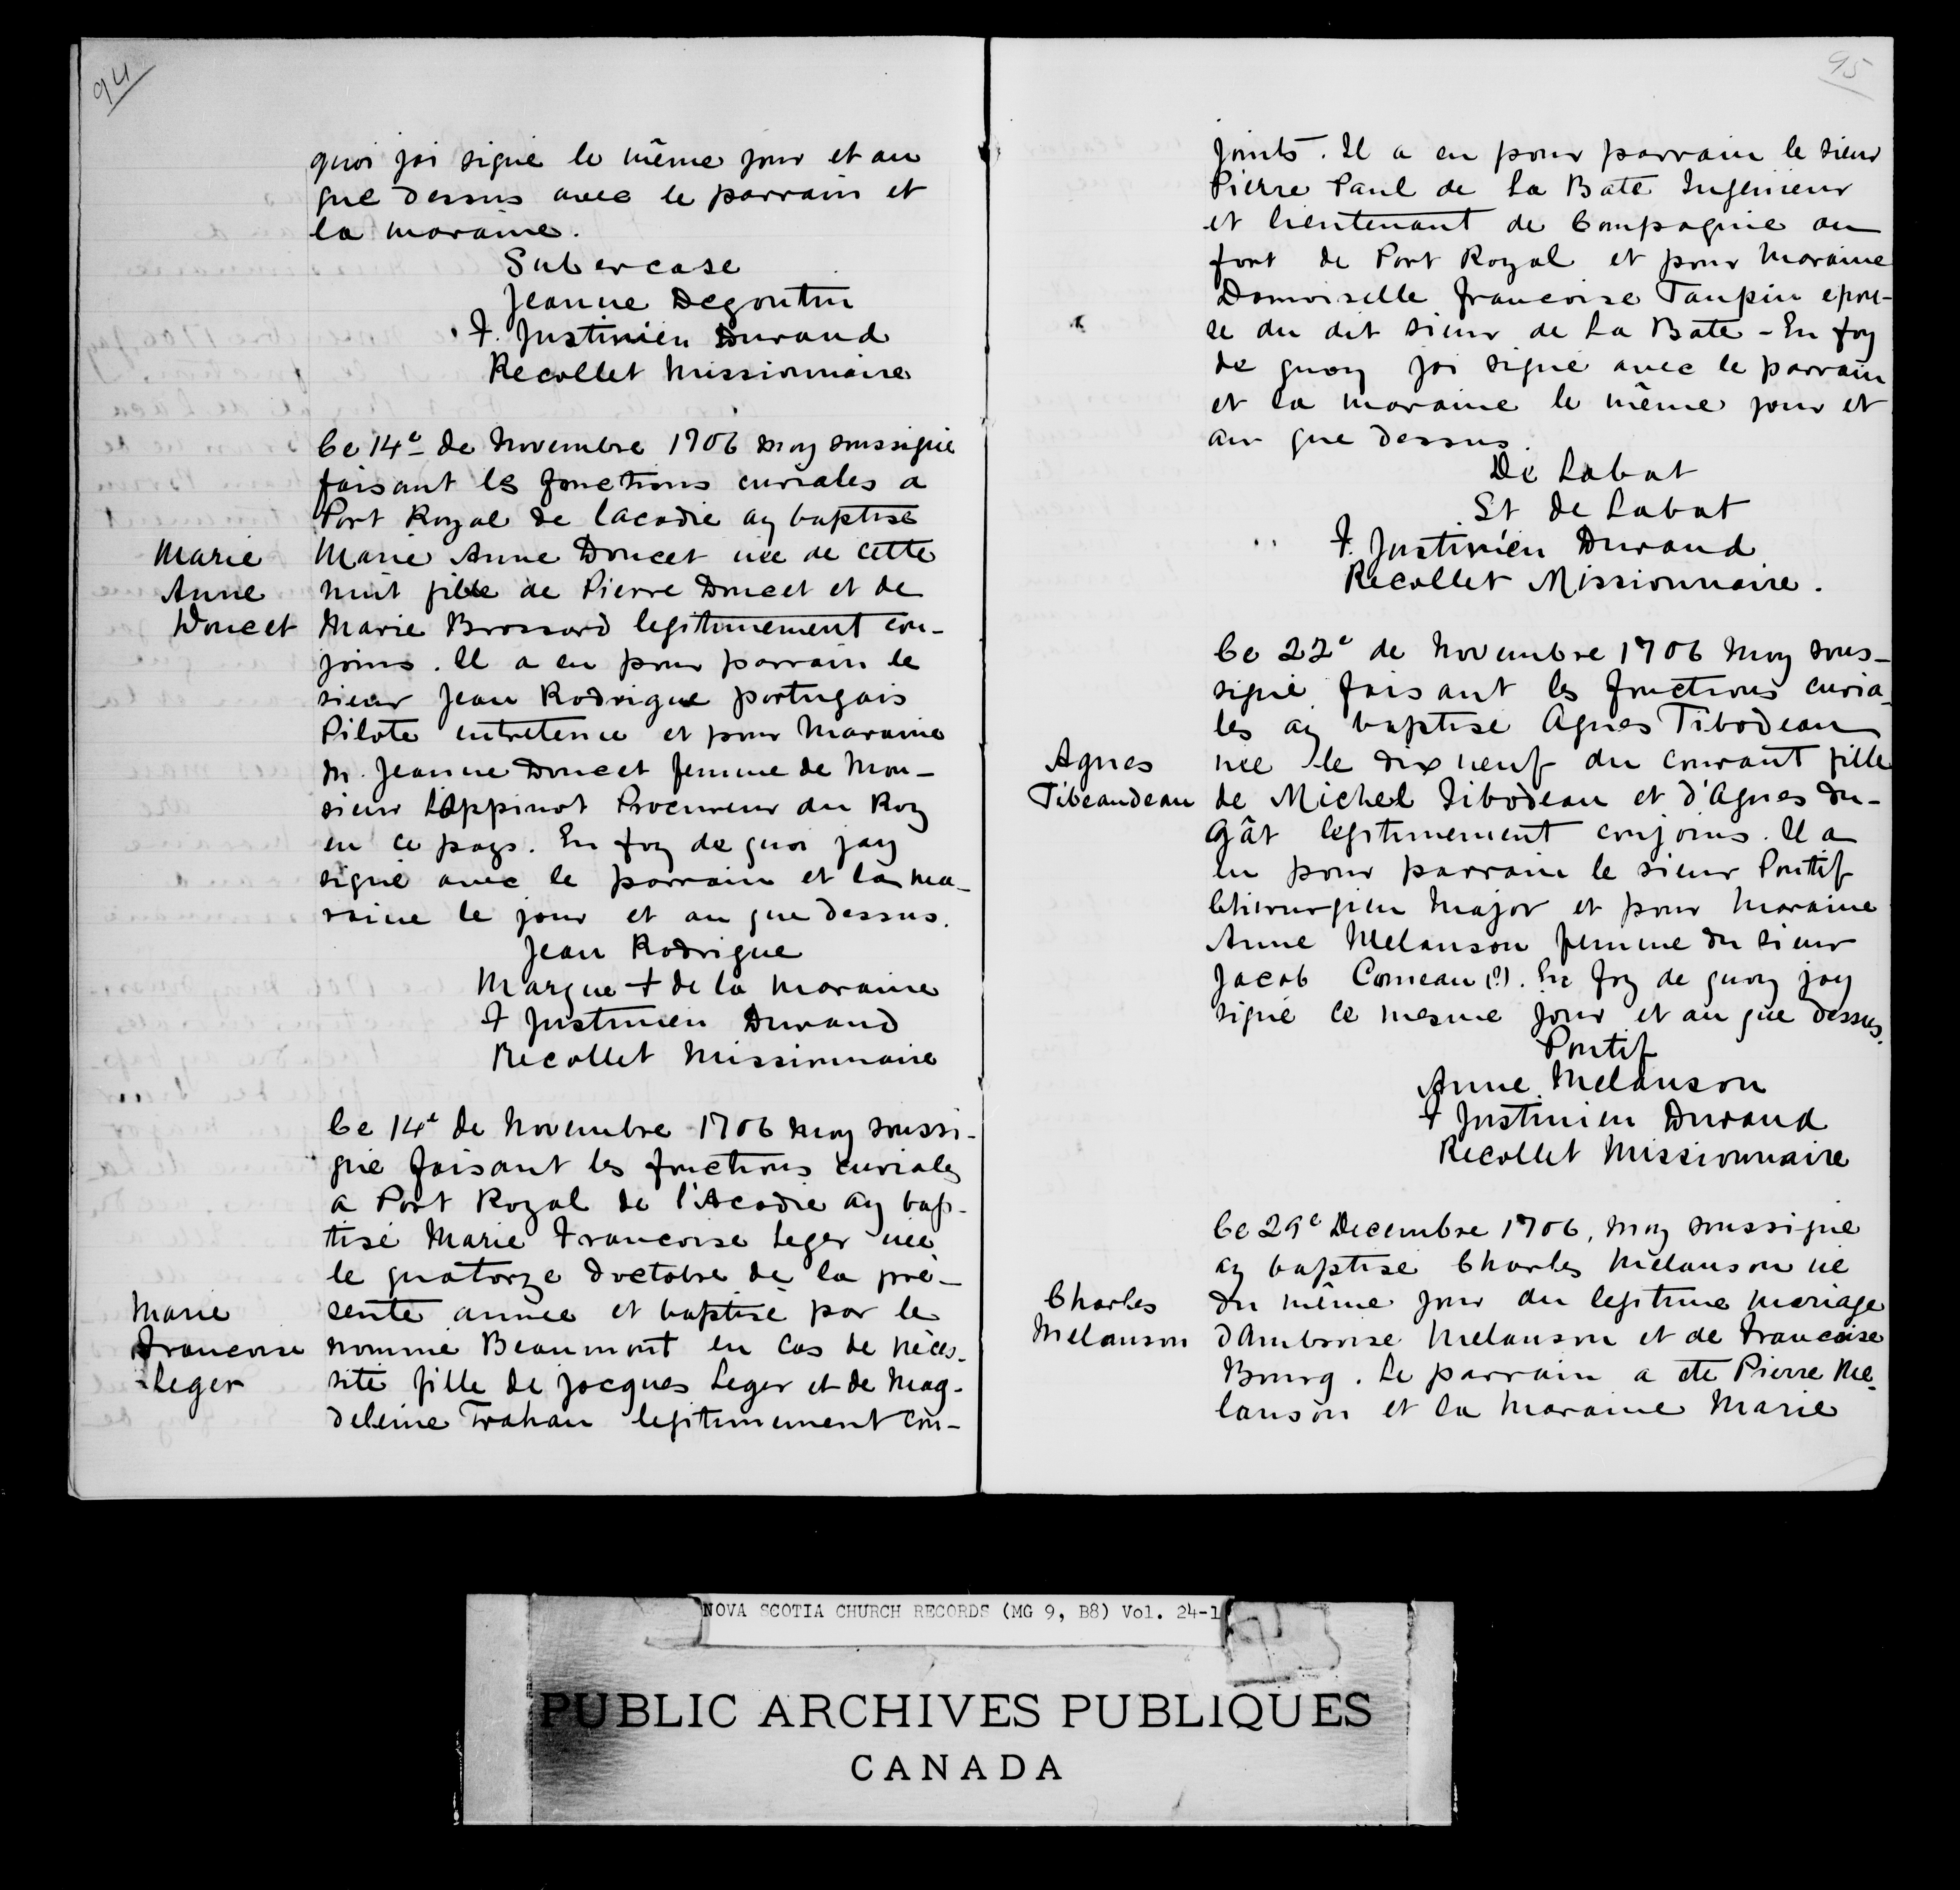 94
quoi jai signé le même jour et an
que dessus avec le parrain et
la maraine.
Subercase
Jeanne Degoutin
F. Justinien Durand
Recollet Missionnaire
Ce 14e de Novembre 1706 moy soussigné
faisant les fonctions curiales a
Port Royal de lacadie ay baptisé
Marie Anne Doucet née de cette
nuit fille de Pierre Doucet et de
Marie Brossard legitimement con-
joins. Il a eu pour parrain le
sieur Jean Rodrigue portugais
Pilote entretenu et pour Maraine
M. Jeanne Doucet femme de Mon-
sieur Lappinot Procureur du Roy
en ce pays. En foy de quoi jay
signé avec le parrain et la ma-
raine le jour et an que dessus.
Marie
Anne
Doucet
Jean Rodrigue
Marque + de la Maraine
F Justinien Durand
Recollet Missionnaire
Ce 14e de Novembre 1706 moy soussi-
gné faisant les fonctions curiales
a Port Royal de l'Acadie ay bap-
tisé Marie Francoise Leger née
le quatorze doctobre de la pré-
sente année et baptisé par le
nommé Beaumont en cas de néces-
sité fille de Jacques Leger et de Mag-
deleine Trahan legitimement con-
Marie
Francoise
Leger
95
joints. Il a eu pour parrain le sieur
Pierre Paul de La Bate Ingenieur
et lieutenant de Compagnie au
fort de Port Royal et pour Maraine
Damoiselle francoise Taupin epou-
se du dit sieur de La Bate - En foy
de quoy jai signé avec le parrain
et la maraine le même jour et
an que dessus.
De Labat
St de Labat
F. Justinien Durand
Recollet Missionnaire.
Ce 22e de Novembre 1706 Moy sous-
signé faisant les fonctions curia-
les ay baptisé Agnes Tibodeau
née le dix neuf du courant fille
de Michel Tibodeau et d'Agnes Du-
gât legitimement conjoins. Il a
eu pour parrain le sieur Pontif
Chirurgien Major et pour Maraine
Anne Melanson femme du sieur
Jacob Comeau (?). En foy de quoy jay
signé ce mesme jour et an que dessus.
Agnes
Tibeaudeau
Pontif
Anne Melanson
F Justinien Durand
Recollet Missionnaire
Ce 29e Decembre 1706, moy soussigné
ay baptisé Charles Melanson né
du même jour du legitime mariage
dAmbroise Melanson et de Francoise
Bourg. Le parrain a ete Pierre Me-
lanson et la Maraine Marie
Charles
Melanson
NOVA SCOTIA CHURCH RECORDS (MG 9, B8) Vol. 24-1
PUBLIC ARCHIVES PUBLIQUES
CANADA